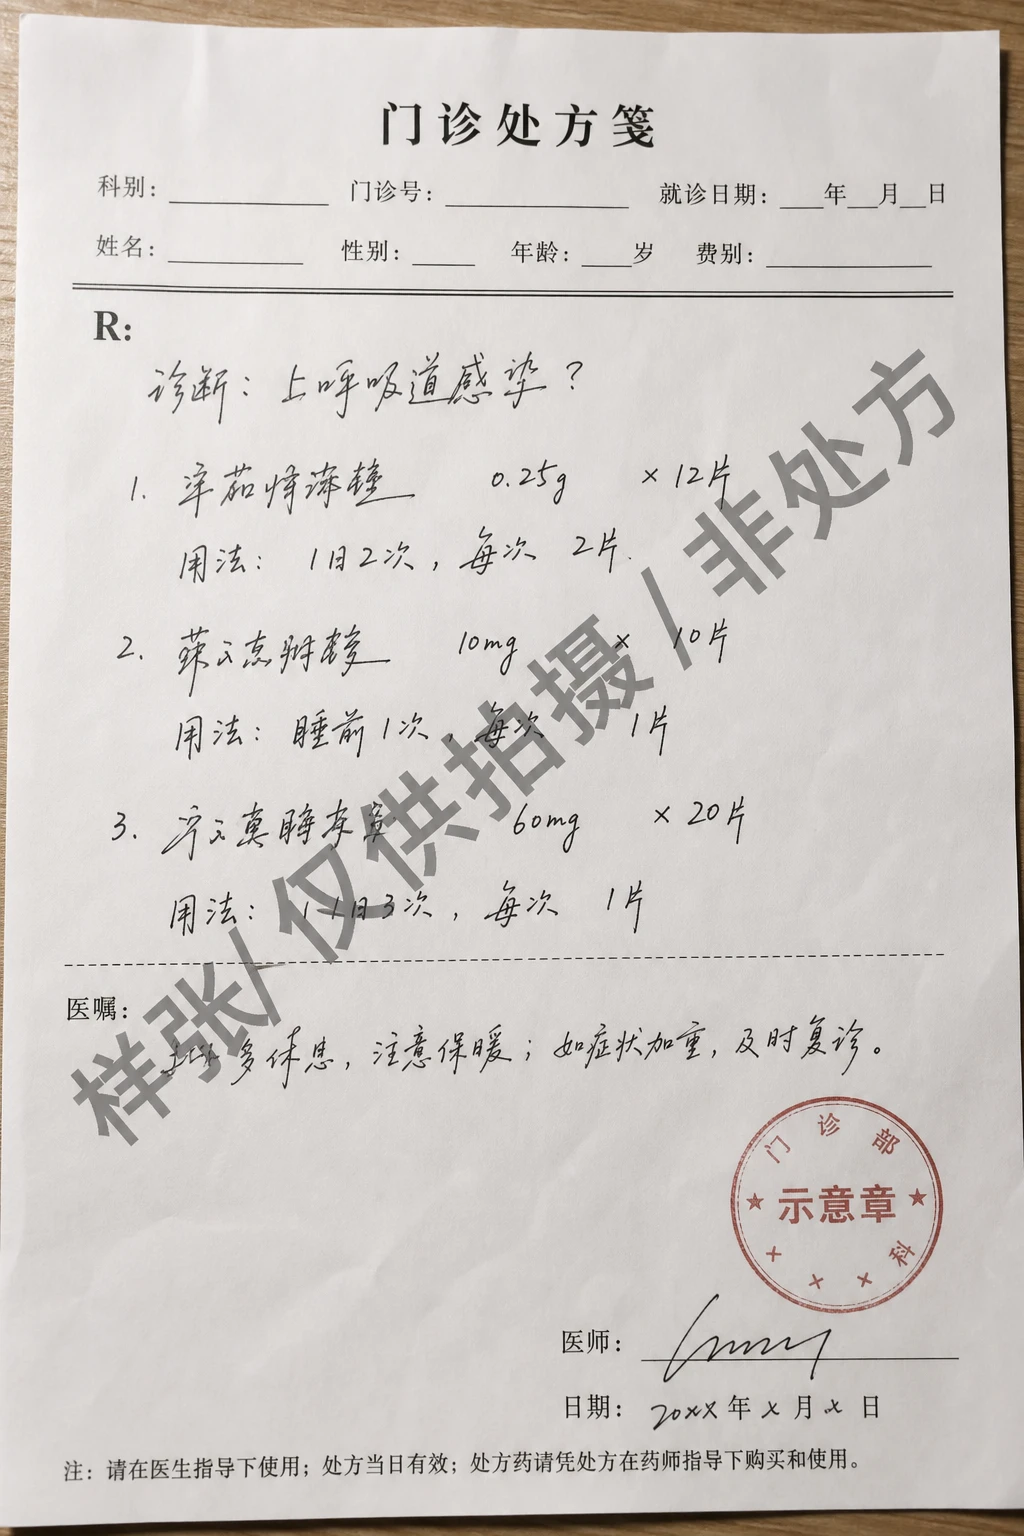 门诊处方笺
科别: 门诊号: 就诊日期: 年 月 日
姓名: 性别: 年龄: 岁 费别:
R:
诊断: 上呼吸道感染?
1. 0.25g ×12片
用法: 1日2次, 每次 2片.
2. 10mg × 10片
用法: 睡前1次, 每次 1片
3. 60mg ×20片
用法: 1日3次, 每次 1片
医嘱:
多休息, 注意保暖; 如症状加重, 及时复诊。
样张/仅供拍摄/非处方
门诊部
★ 示意章 ★
××××科
医师:
日期: 20xx 年 x 月 x 日
注: 请在医生指导下使用; 处方当日有效; 处方药请凭处方在药师指导下购买和使用。